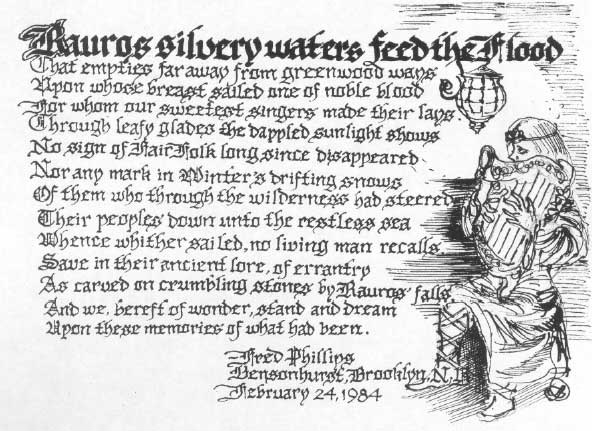 Rauros silvery waters feed the Flood
That empties far away from greenwood ways
Upon whose breast sailed one of noble blood
For whom our sweetest singers made their lays.
Through leafy glades the dappled sunlight shows
No sign of Fair Folk long since disappeared
Nor any mark in Winter's drifting snows
Of them who through the wilderness had steered
Their peoples down unto the restless sea
Whence whither sailed, no living man recalls
Save in their ancient lore, of errantry
As carved on crumbling stones by Rauros' falls.
And we, bereft of wonder, stand and dream
Upon these memories of what had been.
Fred Phillips
Bensonhurst, Brooklyn, N.Y.
February 24, 1984